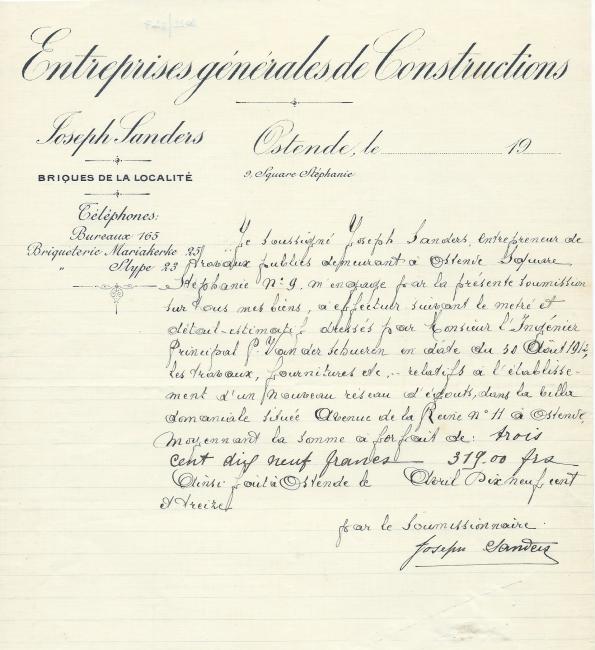 Entreprises générales de Constructions
Joseph Sanders
BRIQUES DE LA LOCALITÉ
Téléphones:
Bureaux 165
Briqueterie Mariakerke 25
" Slype 23
Ostende, le 19
9, Square Stéphanie
Je soussigné Joseph Sanders, entrepreneur de
travaux publics demeurant à Ostende Square
Stéphanie N° 9, m'engage par la présente soumission
sur tous mes biens, à effectuer suivant le metré et
détail-estimatif dressés par Monsieur l'Ingénier
Principal P. Vanderschueren en date du 30 Août 1912,
les travaux, fournitures etc. relatifs à l'établisse-
ment d'un nouveau réseau d'égouts, dans la villa
domaniale située Avenue de la Reine n° 11 à Ostende,
moyennant la somme à forfait de: trois
cent dix neuf francs 319.00 frs
Ainsi fait à Ostende le Avril Dix neuf cent
et treize
par le soumissionnaire.
Joseph Sanders